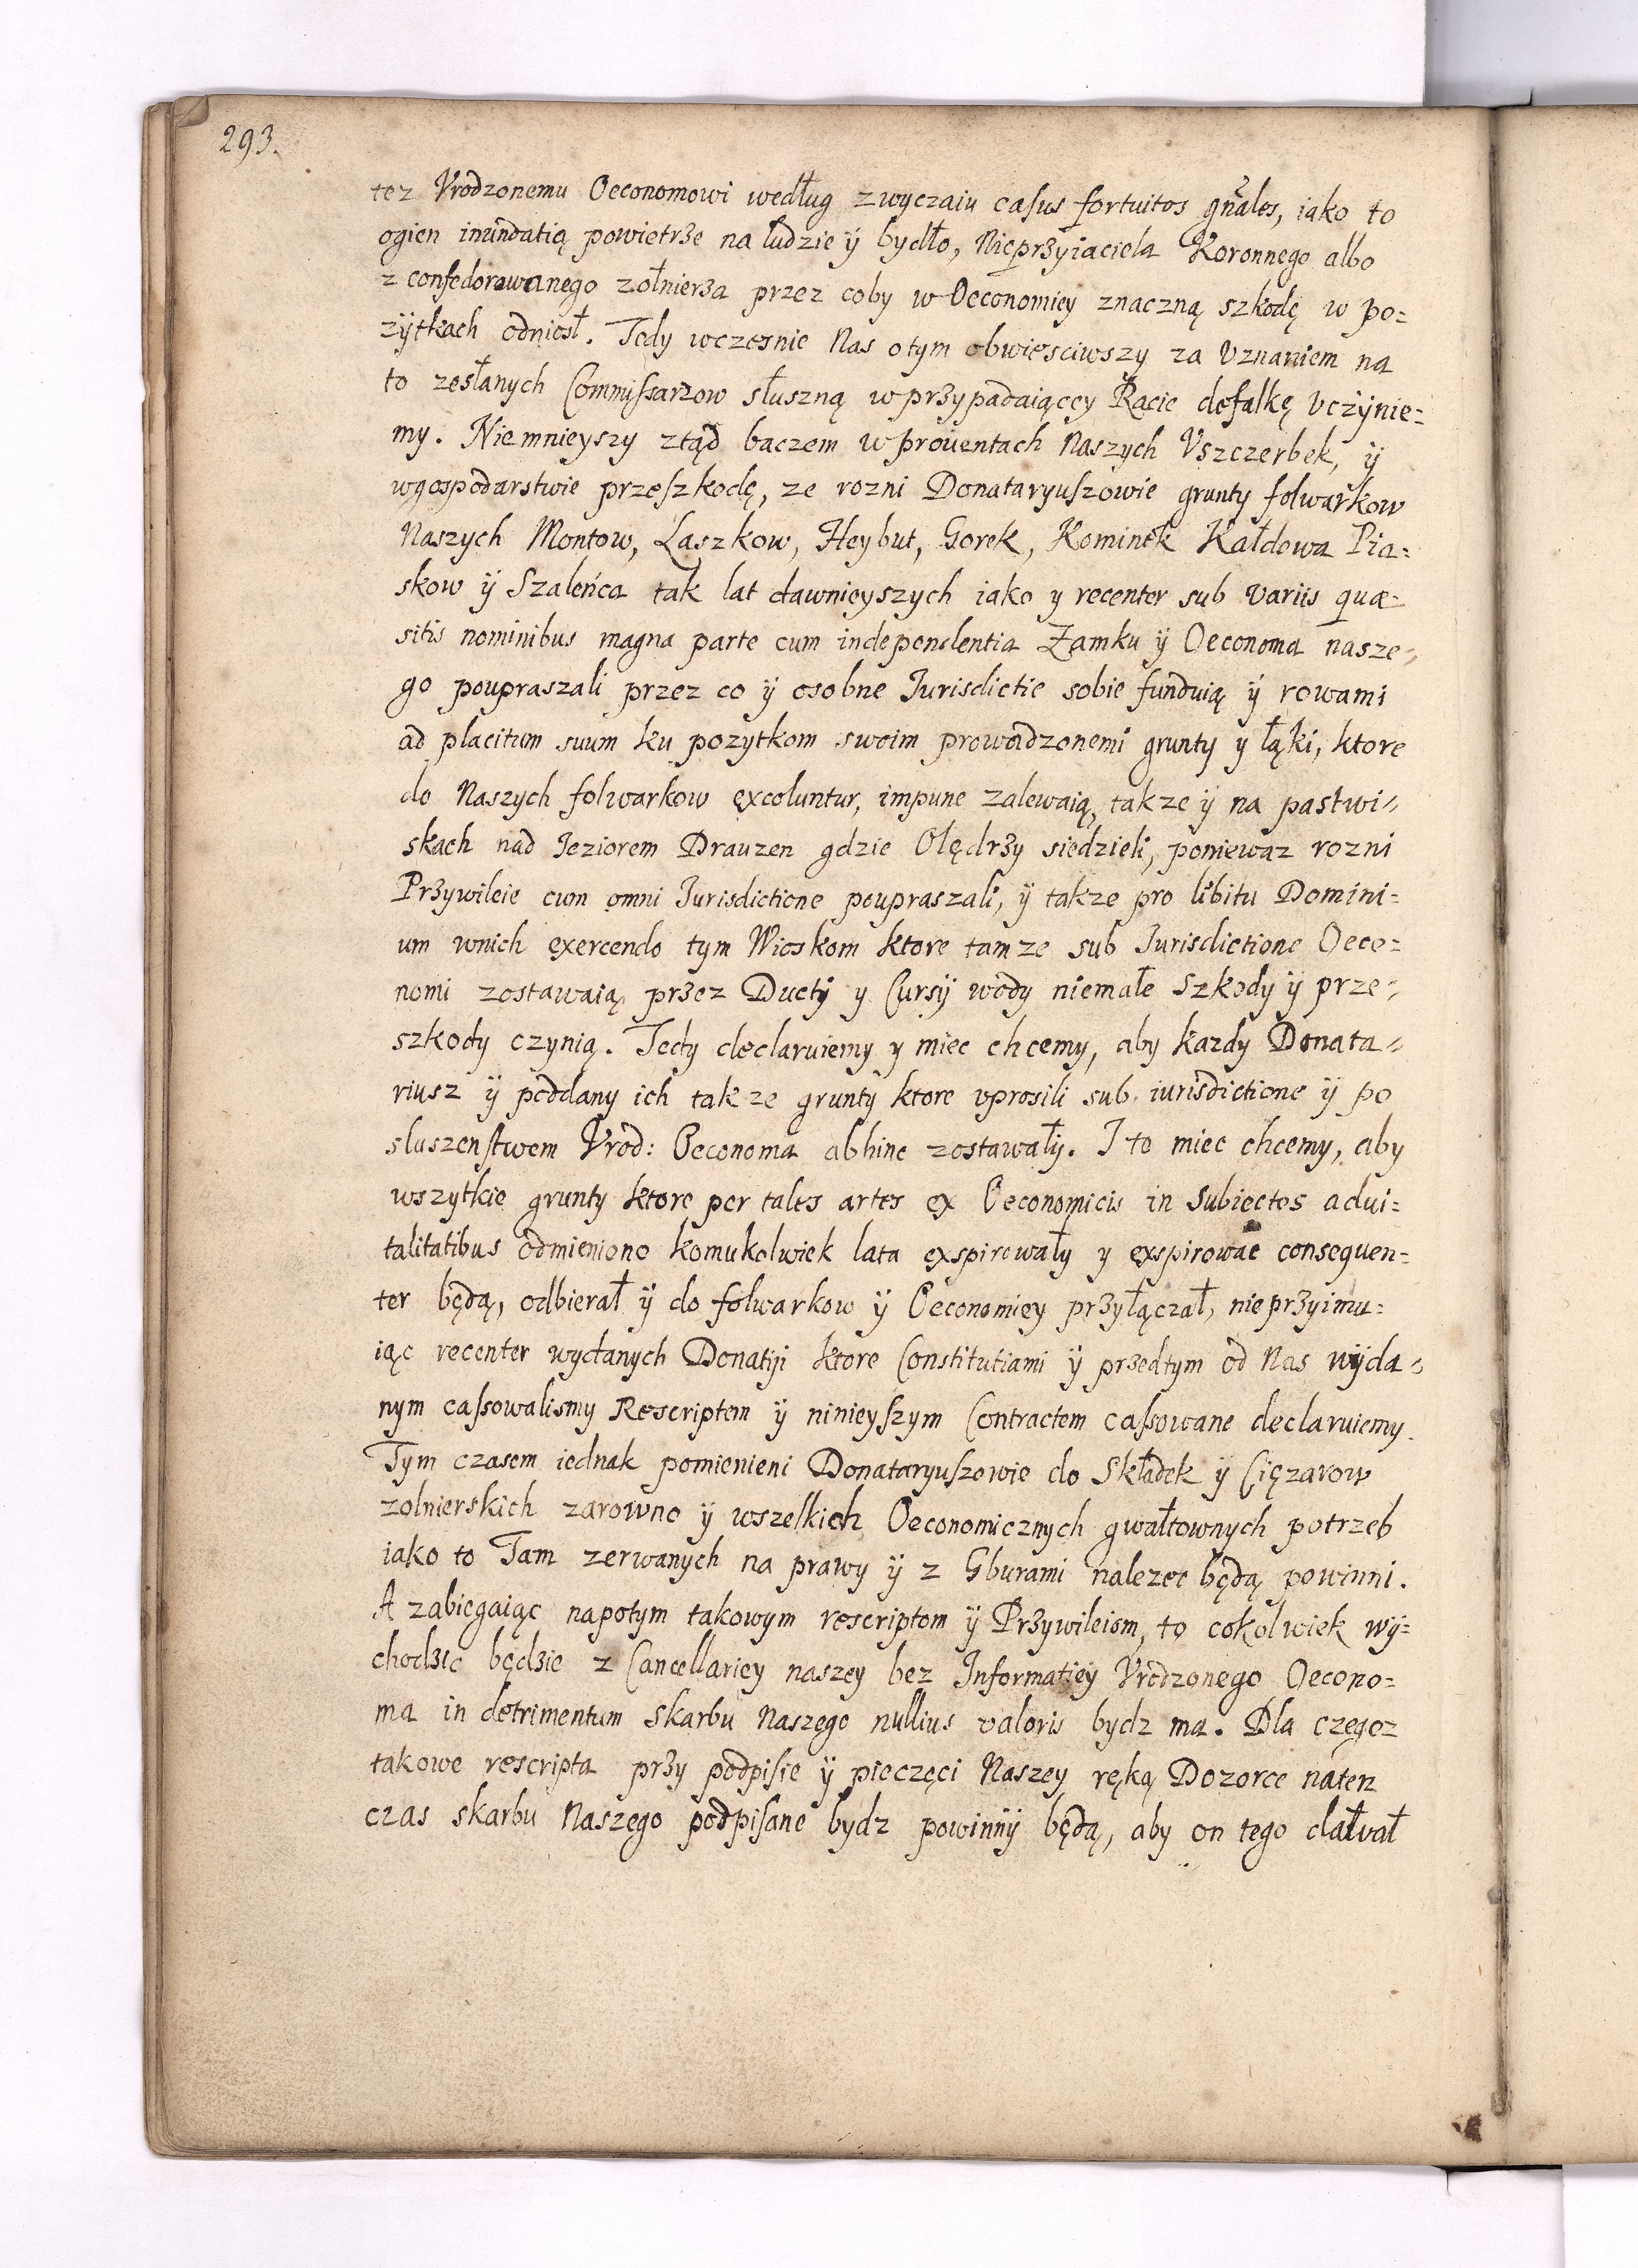 293.
tez Vrodzonemu Oeconomowi według zwyczaiu casus fortuitos gnales, iako to
ogien inundatią powietrze na ludzie ÿ bydło, Nieprzyiaciela Koronnego albo
z confederowanego zołnierza przez coby w Oeconomiey znaczną szkodę w po=
zÿtkach odniosł. Tedy wczesnie Nas otym obwiesciwszy za Vznaniem na
to zesłanych Commissarzow słuszną w przypadaiącey Racie defalkę vczÿnie=
my. Niemnieyszy ztąd baczem w proventach Naszych Vszczerbek, ÿ
wgospodarstwie przeszkodę, ze rozni Donataryuszowie grunty folwarkow
Naszych Montow, Laszkow, Heybut, Gorek, Kominek Kałdowa Pia=
skow ÿ Szaleńca tak lat dawnieyszych iako y recenter sub variis quæ=
sitis nominibus magna parte cum independentia Zamku ÿ Oeconoma nasze=
go poupraszali przez co ÿ osobne Jurisdictie sobie funduią ÿ rowami
ad placitum suum ku pozytkom swoim prowadzonemi grunty y łąki, ktore
do Naszych folwarkow excoluntur, impune zalewaią, takze ÿ na pastwi=
skach nad Jeziorem Drauzen gdzie Olędrzy siedzieli, poniewaz rozni
Przywileie cum omni Jurisdictione poupraszali, ÿ takze pro libitu Domini=
um wnich exercendo tym Wioskom ktore tamze sub Jurisdictione Oeco=
nomi zostawaią, przez Ductÿ y Cursÿ wody niemałe szkody ÿ prze=
szkody czynią. Tedy declaruiemy y miec chcemy, aby kazdy Donata=
riusz ÿ poddany ich takze grunty ktore vprosili sub iurisdictione ÿ po
sluszenstwem Vrod: Oeconoma abhinc zostawałÿ. I to miec chcemy, aby
wszytkie grunty ktore per tales artes ex Oeconomicis in subiectos advi=
talitatibus odmienione komukolwiek lata exspirowały y exspirowac consequen=
ter będą, odbierał ÿ do folwarkow ÿ Oeconomiey przyłączał, nieprzyimu=
iąc recenter wydanych Donatiji ktore Constitutiami ÿ przedtym od Nas wÿda=
nym cassowalismy Rescriptem ÿ ninieyszym Contractem cassowane declaruiemy.
Tym czasem iednak pomienieni Donataryuszowie do Składek ÿ Ciężarow
zolnierskich zarowno ÿ wszelkich Oeconomicznych gwałtownych potrzeb
iako to Tam zerwanych na prawy ÿ z Gburami nalezec będą powinni.
A zabiegaiąc napotym takowym rescriptom ÿ Przywileiom, to cokolwiek wÿ=
chodzic będzie z Cancellariey naszey bez Informatieÿ Vrodzonego Oecono=
ma in detrimentum Skarbu Naszego nullius valoris bydz ma. Dla czegoz
takowe rescripta przy podpisie ÿ pieczęci Naszey ręką Dozorce naten
czas skarbu Naszego podpisane bydz powinnÿ będą, aby on tego